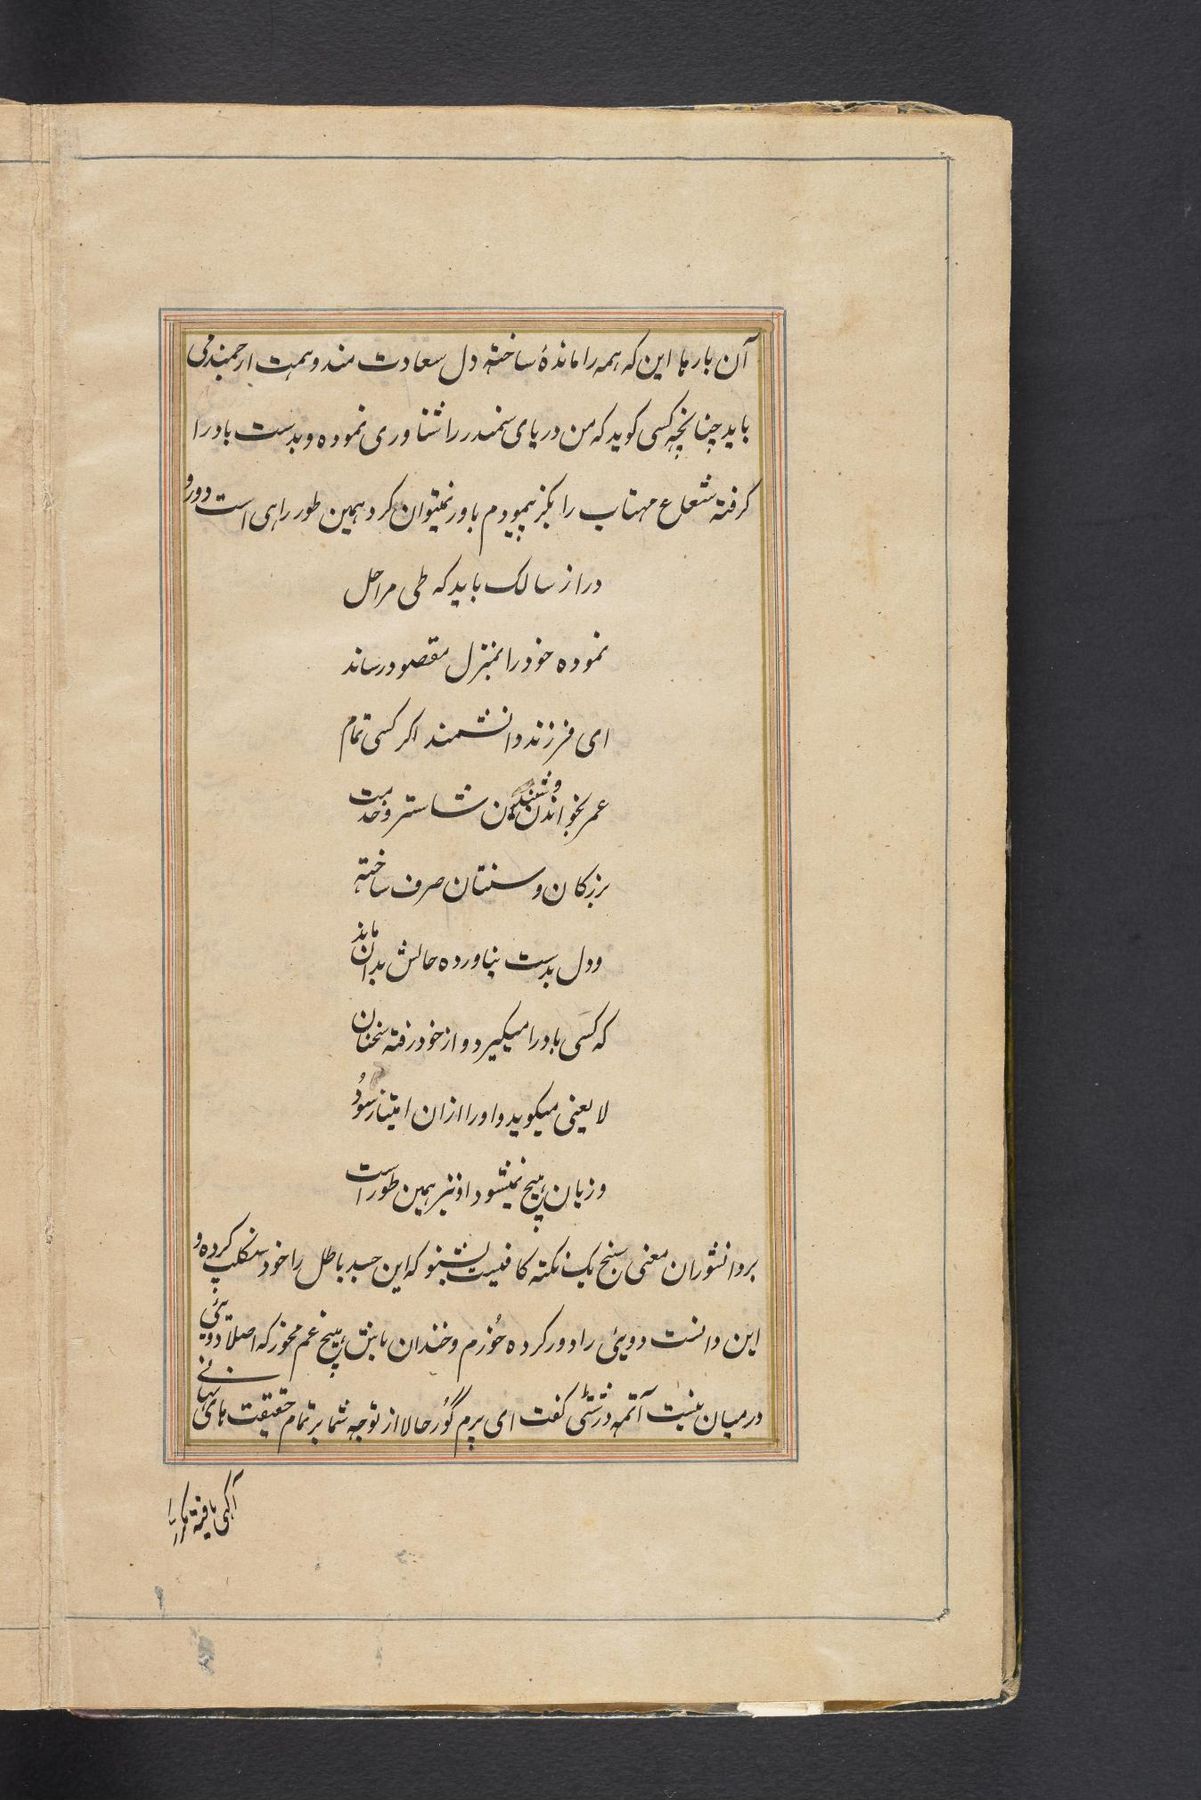 آن بار ما این که همه را ماندهٔ ساخته دل سعادت مند و همت ارجمند می
باید چنانچه کسی کوید که من دریای سمندر را شناوری نموده و بدست باد را
کرفته شعاع مهتاب را بکز پیمودم باور نمیتوان کرد همین طور راهی است دور و
دراز سالک باید که طی مراحل
نموده خود را بمنزل مقصود رساند
ای فرزند دانشمند اکر کسی تمام
عمر بخواندن و شاستر و خدمت
بزرکان و سنتان صرف ساخته
و دل بدست نیاورده حالش بدان ماند
که کسی باد را میکیرد و از خود رفته سخنان
لا یعنی میکوید و او را ازان امتیاز سُود
و زیان هیچ نمیشود او نیز همین طور است
بر دانشوران معنی سنج یک نکته کافیست بشنو که این جسد باطل را خود سنکلپ کرده و
این دانست دویئ را دور کرده خُورم و خندان باش هیچ غم مخور که اصلا دویئی
درمیان نیست آتمه درشتی کفت ای پرم گُور حالا از توجه شما بر تمام حقیقت های نهانی
آکهی یافته